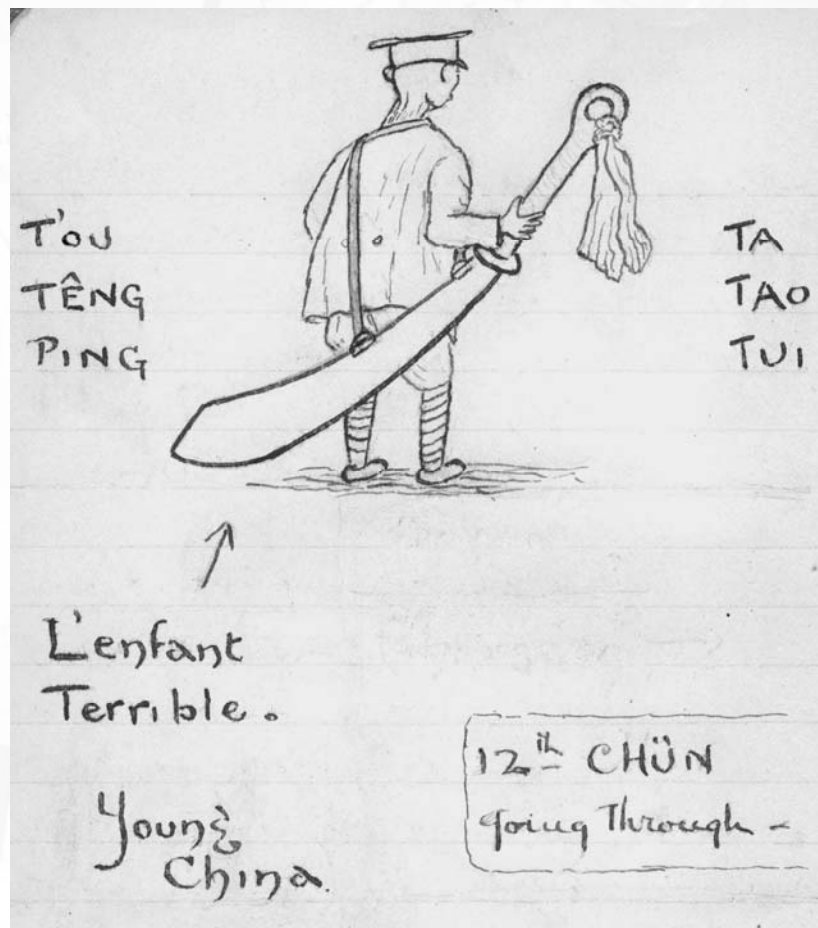 T'OU
TÊNG
PING
TA
TAO
TUI
L'enfant
Terrible.
Young
China
12th CHÜN
going Through -